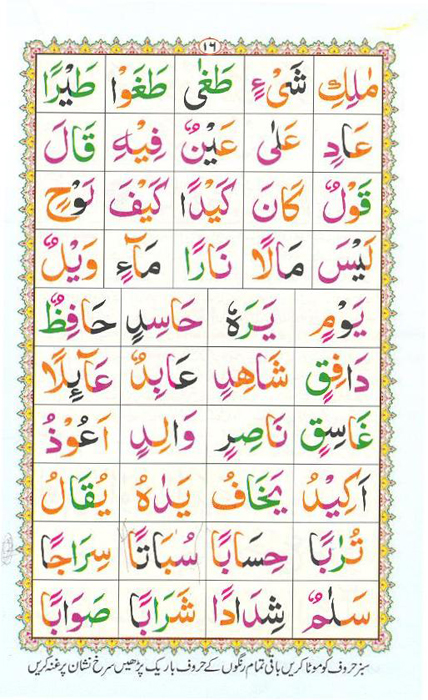 ١٦
مٰلِكِ شَیْءٍ طَغٰی طَغَوْا طَيْرًا
عَادٍ عَلٰی عَيْنٌ فِيْهِ قَالَ
قَوْلٌ كَانَ كَيْدًا كَيْفَ نُوْحٍ
لَيْسَ مَالًا نَارًا مَآءٍ وَيْلٌ
يَوْمٍ يَرَهٗ حَاسِدٍ حَافِظٌ
دَافِقٍ شَاهِدٍ عَابِدٌ عَآئِلًا
غَاسِقٍ نَاصِرٍ وَالِدٍ اَعُوْذُ
اَكِيْدُ يَخَافُ يَدٰهُ يُقَالُ
تُرٰبًا حِسَابًا سُبَاتًا سِرَاجًا
سَلٰمٌ شِدَادًا شَرَابًا صَوَابًا
سبز حروف کو موٹا کریں باقی تمام رنگوں کے حروف باریک پڑھیں سرخ نشان پر غنہ کریں